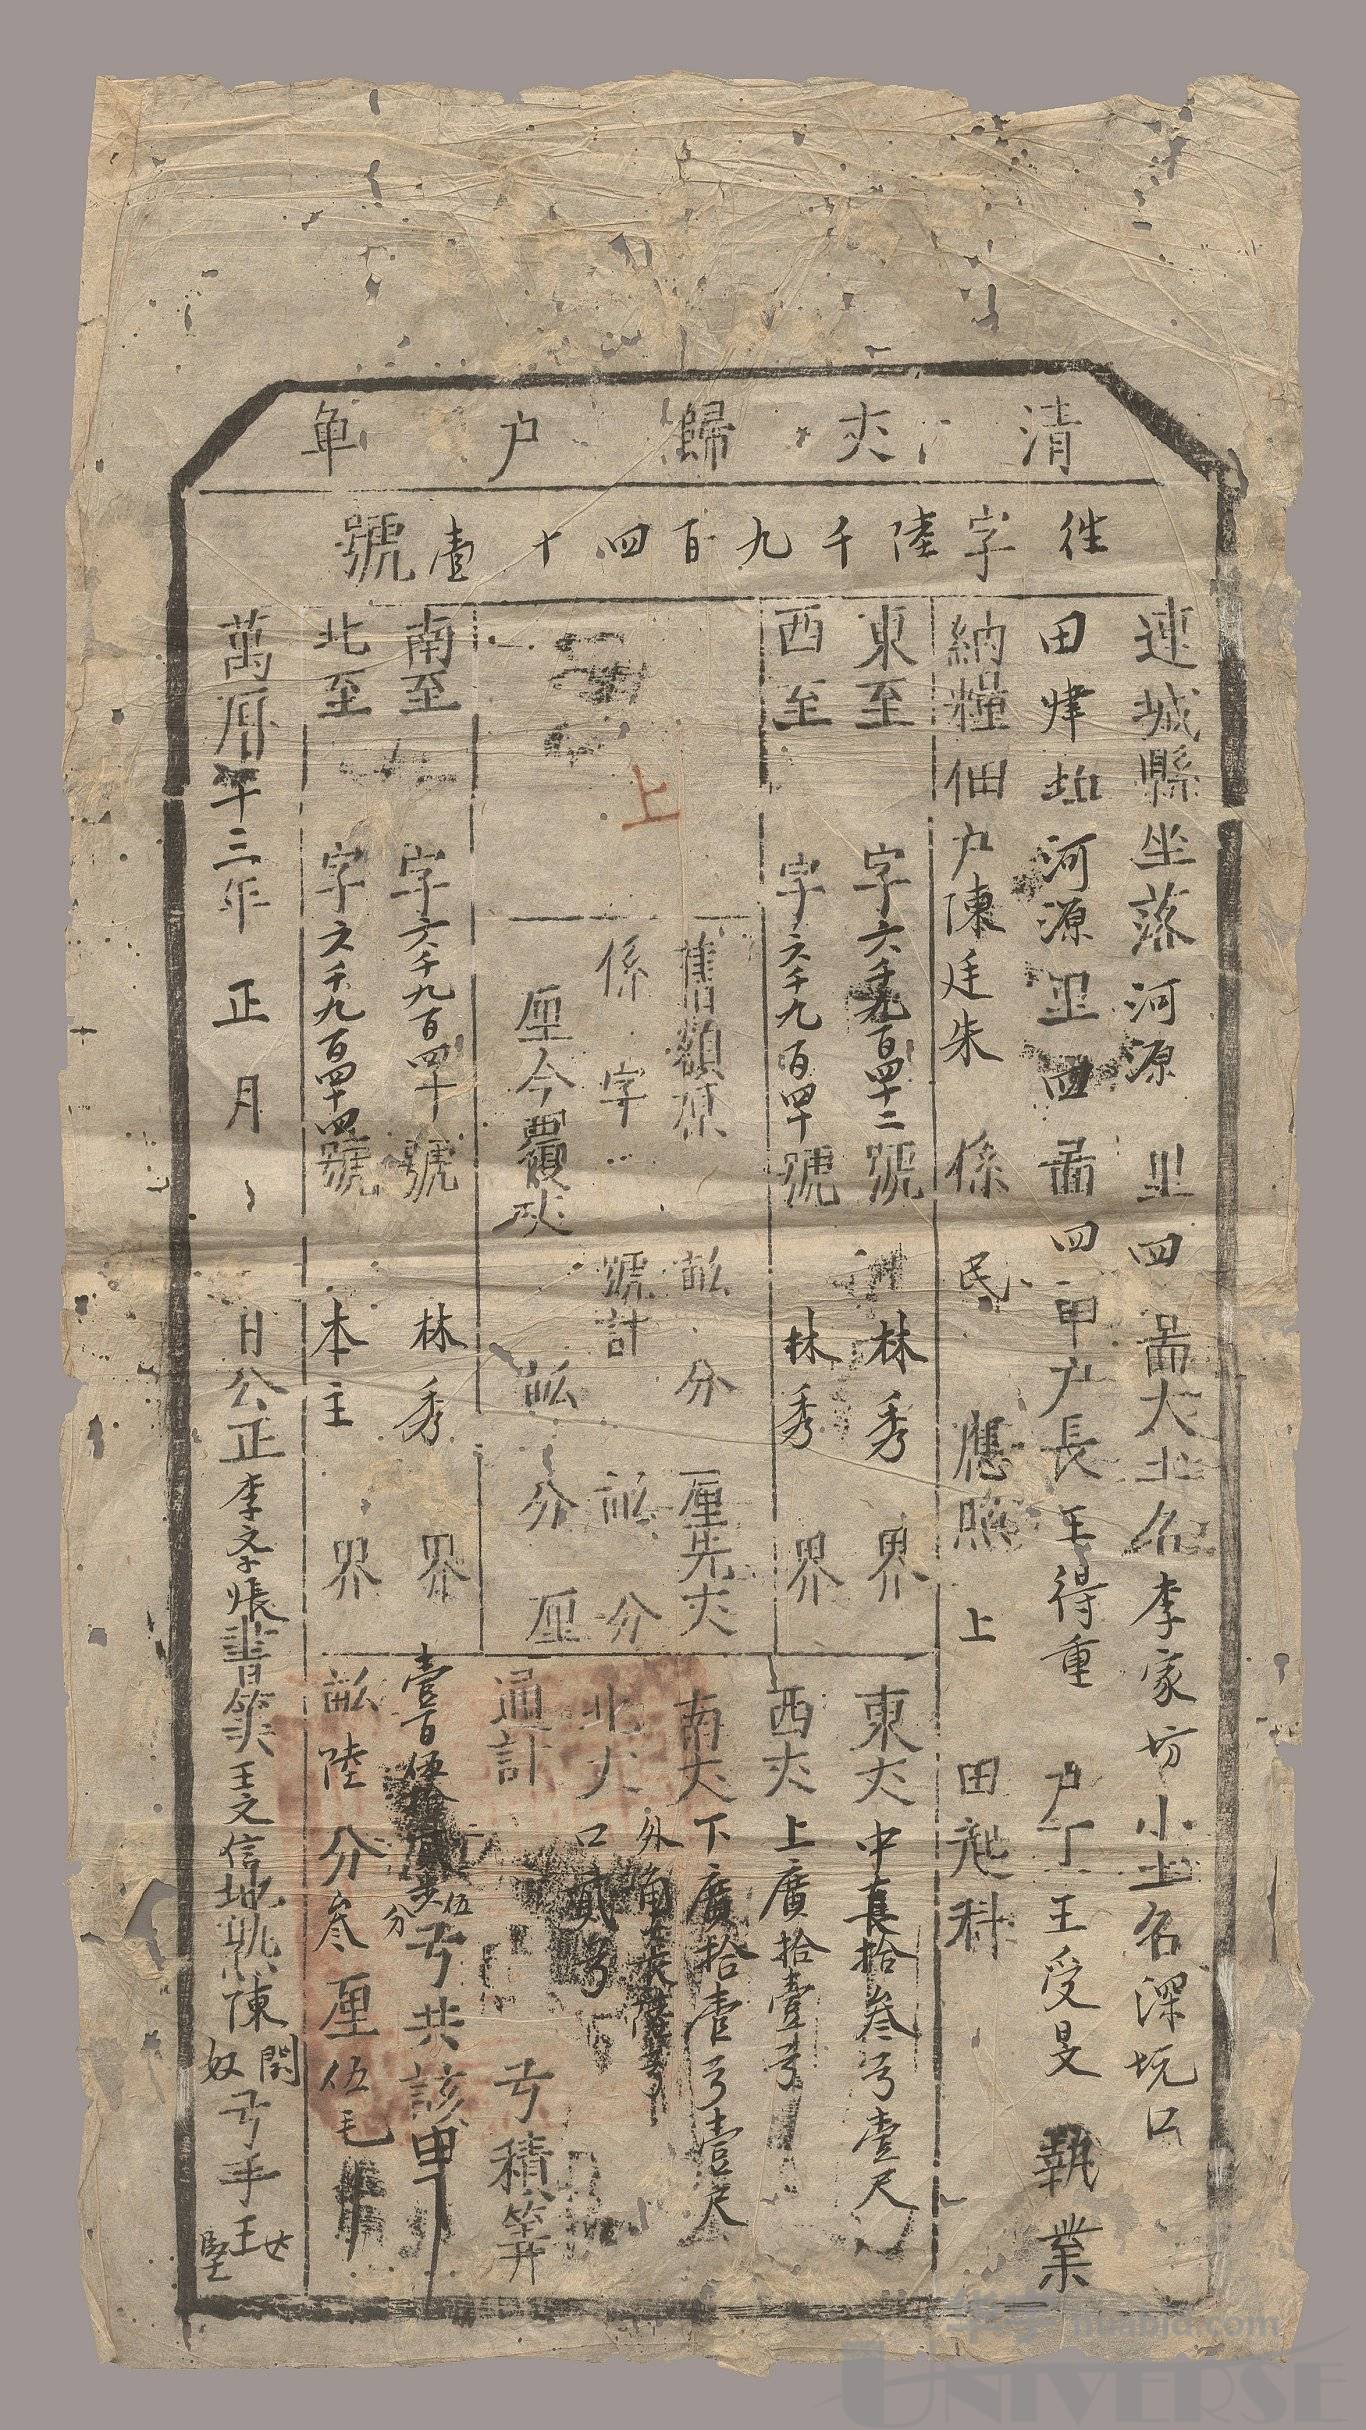 清丈歸户单
往字陸千九百四十壹號
連城縣坐落河源里四啚大土名李家坊小土名深坑口
田肆坵河源里四啚四甲户長王得重户丁王受旻執業
納糧佃户陳廷朱係民應照上田起科
東至字六千九百四十二號林秀界
西至字六千九百四十號林秀界
上
舊額原畝分厘先丈
係字號計畝分
厘今覆丈畝分厘
南至字六千九百四十號林秀界
北至字六千九百四十四號本主界
東丈中長拾叁弓壹尺
西丈上廣拾壹弓
南丈下廣拾壹弓壹尺
外角
北丈口貳弓
通計弓積筭
壹百伍分弓共該
畝陸分叁厘伍毛
萬厯十三年正月日公正李文張書筭王文信地執陳閑奴弓手王廿堅
huabid.com
UNIVERSE